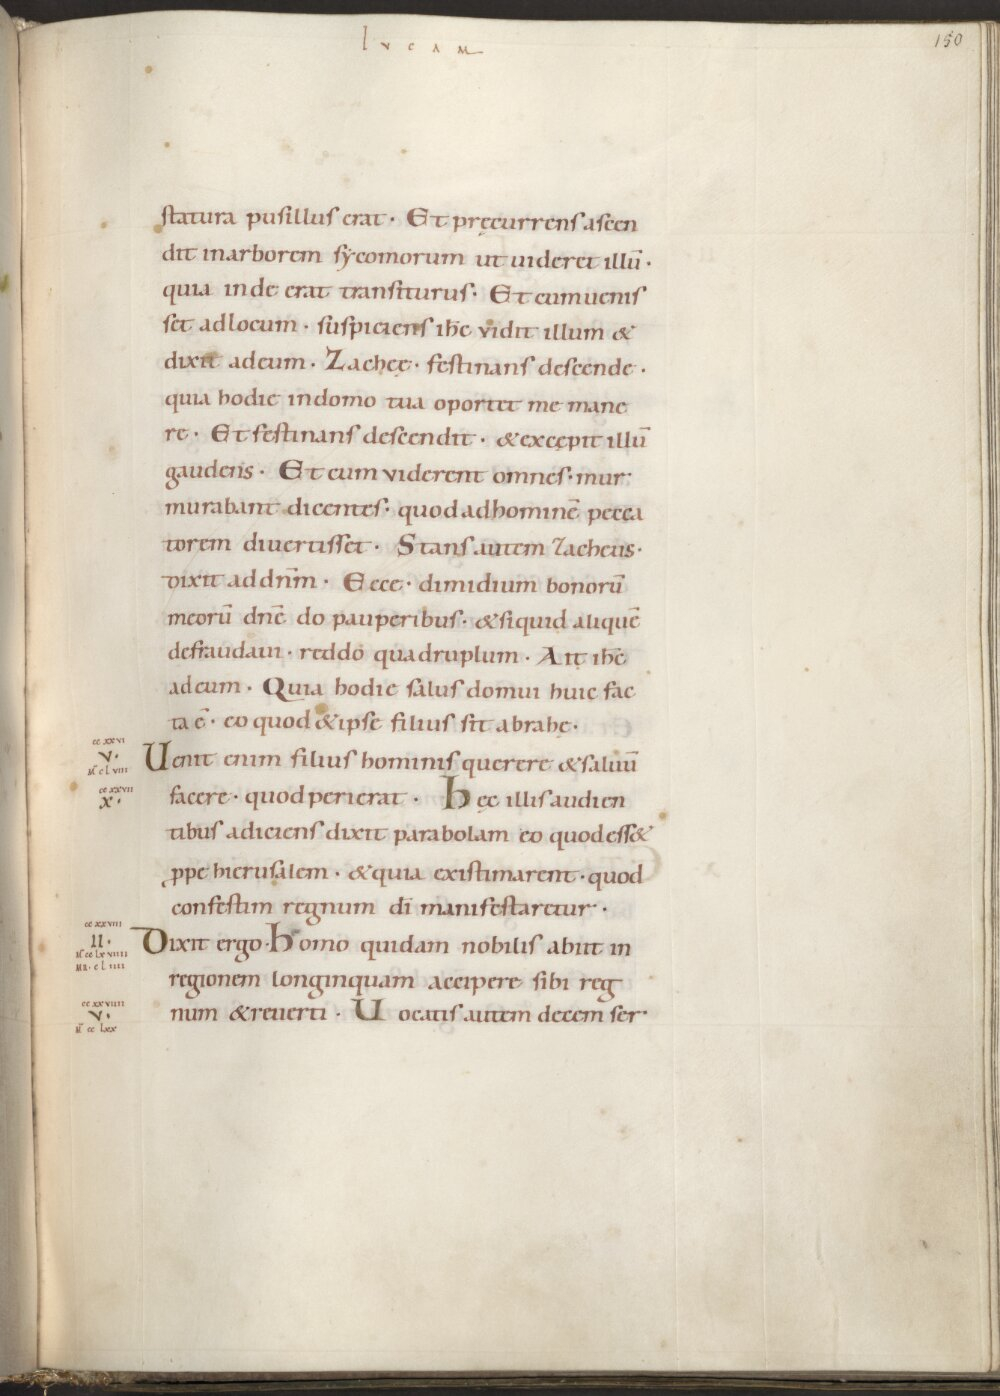 lucam
150
statura pusillus erat · Et pręcurrens ascen
dit in arborem sycomorum ut uideret illū ·
quia inde erat transiturus · Et cum uenis
set ad locum · suspiciens ihc̄ vidit illum &
dixit ad eum · Zachęe · festinans descende ·
quia hodie in domo tua oportet me mane
re · Et festinans descendit · & excępit illū
gaudens · Et cum viderent omnes · mur
murabant dicentes · quod ad hominē pecca
torem divertisset · Stans autem Zacheus ·
dixit ad dnm̄ · Ecce · dimidium bonorū
meorū dnē do pauperibus · & si quid aliquē
defraudaui · reddo quadruplum · Ait ihc̄
ad eum · Quia hodie salus domui huic fac
ta ē · eo quod & ipse filius sit abrahę ·
cc xxvi
v ·
M̄ c l viii
Uenit enim filius hominis querere & saluū
cc xxvii
x ·
facere · quod perierat · hęc illis audien
tibus adiciens dixit parabolam eo quod ess&
ꝓpe hierusalem · & quia existimarent · quod
confestim regnum dī manifestaretur ·
cc xxviii
ii ·
M̄ cc lx viiii
MR · c l iiii
Dixit ergo · homo quidam nobilis abiit in
regionem longinquam accipere sibi reg
cc xxviiii
v ·
M̄ cc lxx
num & reuerti · Uocatis autem decem ser